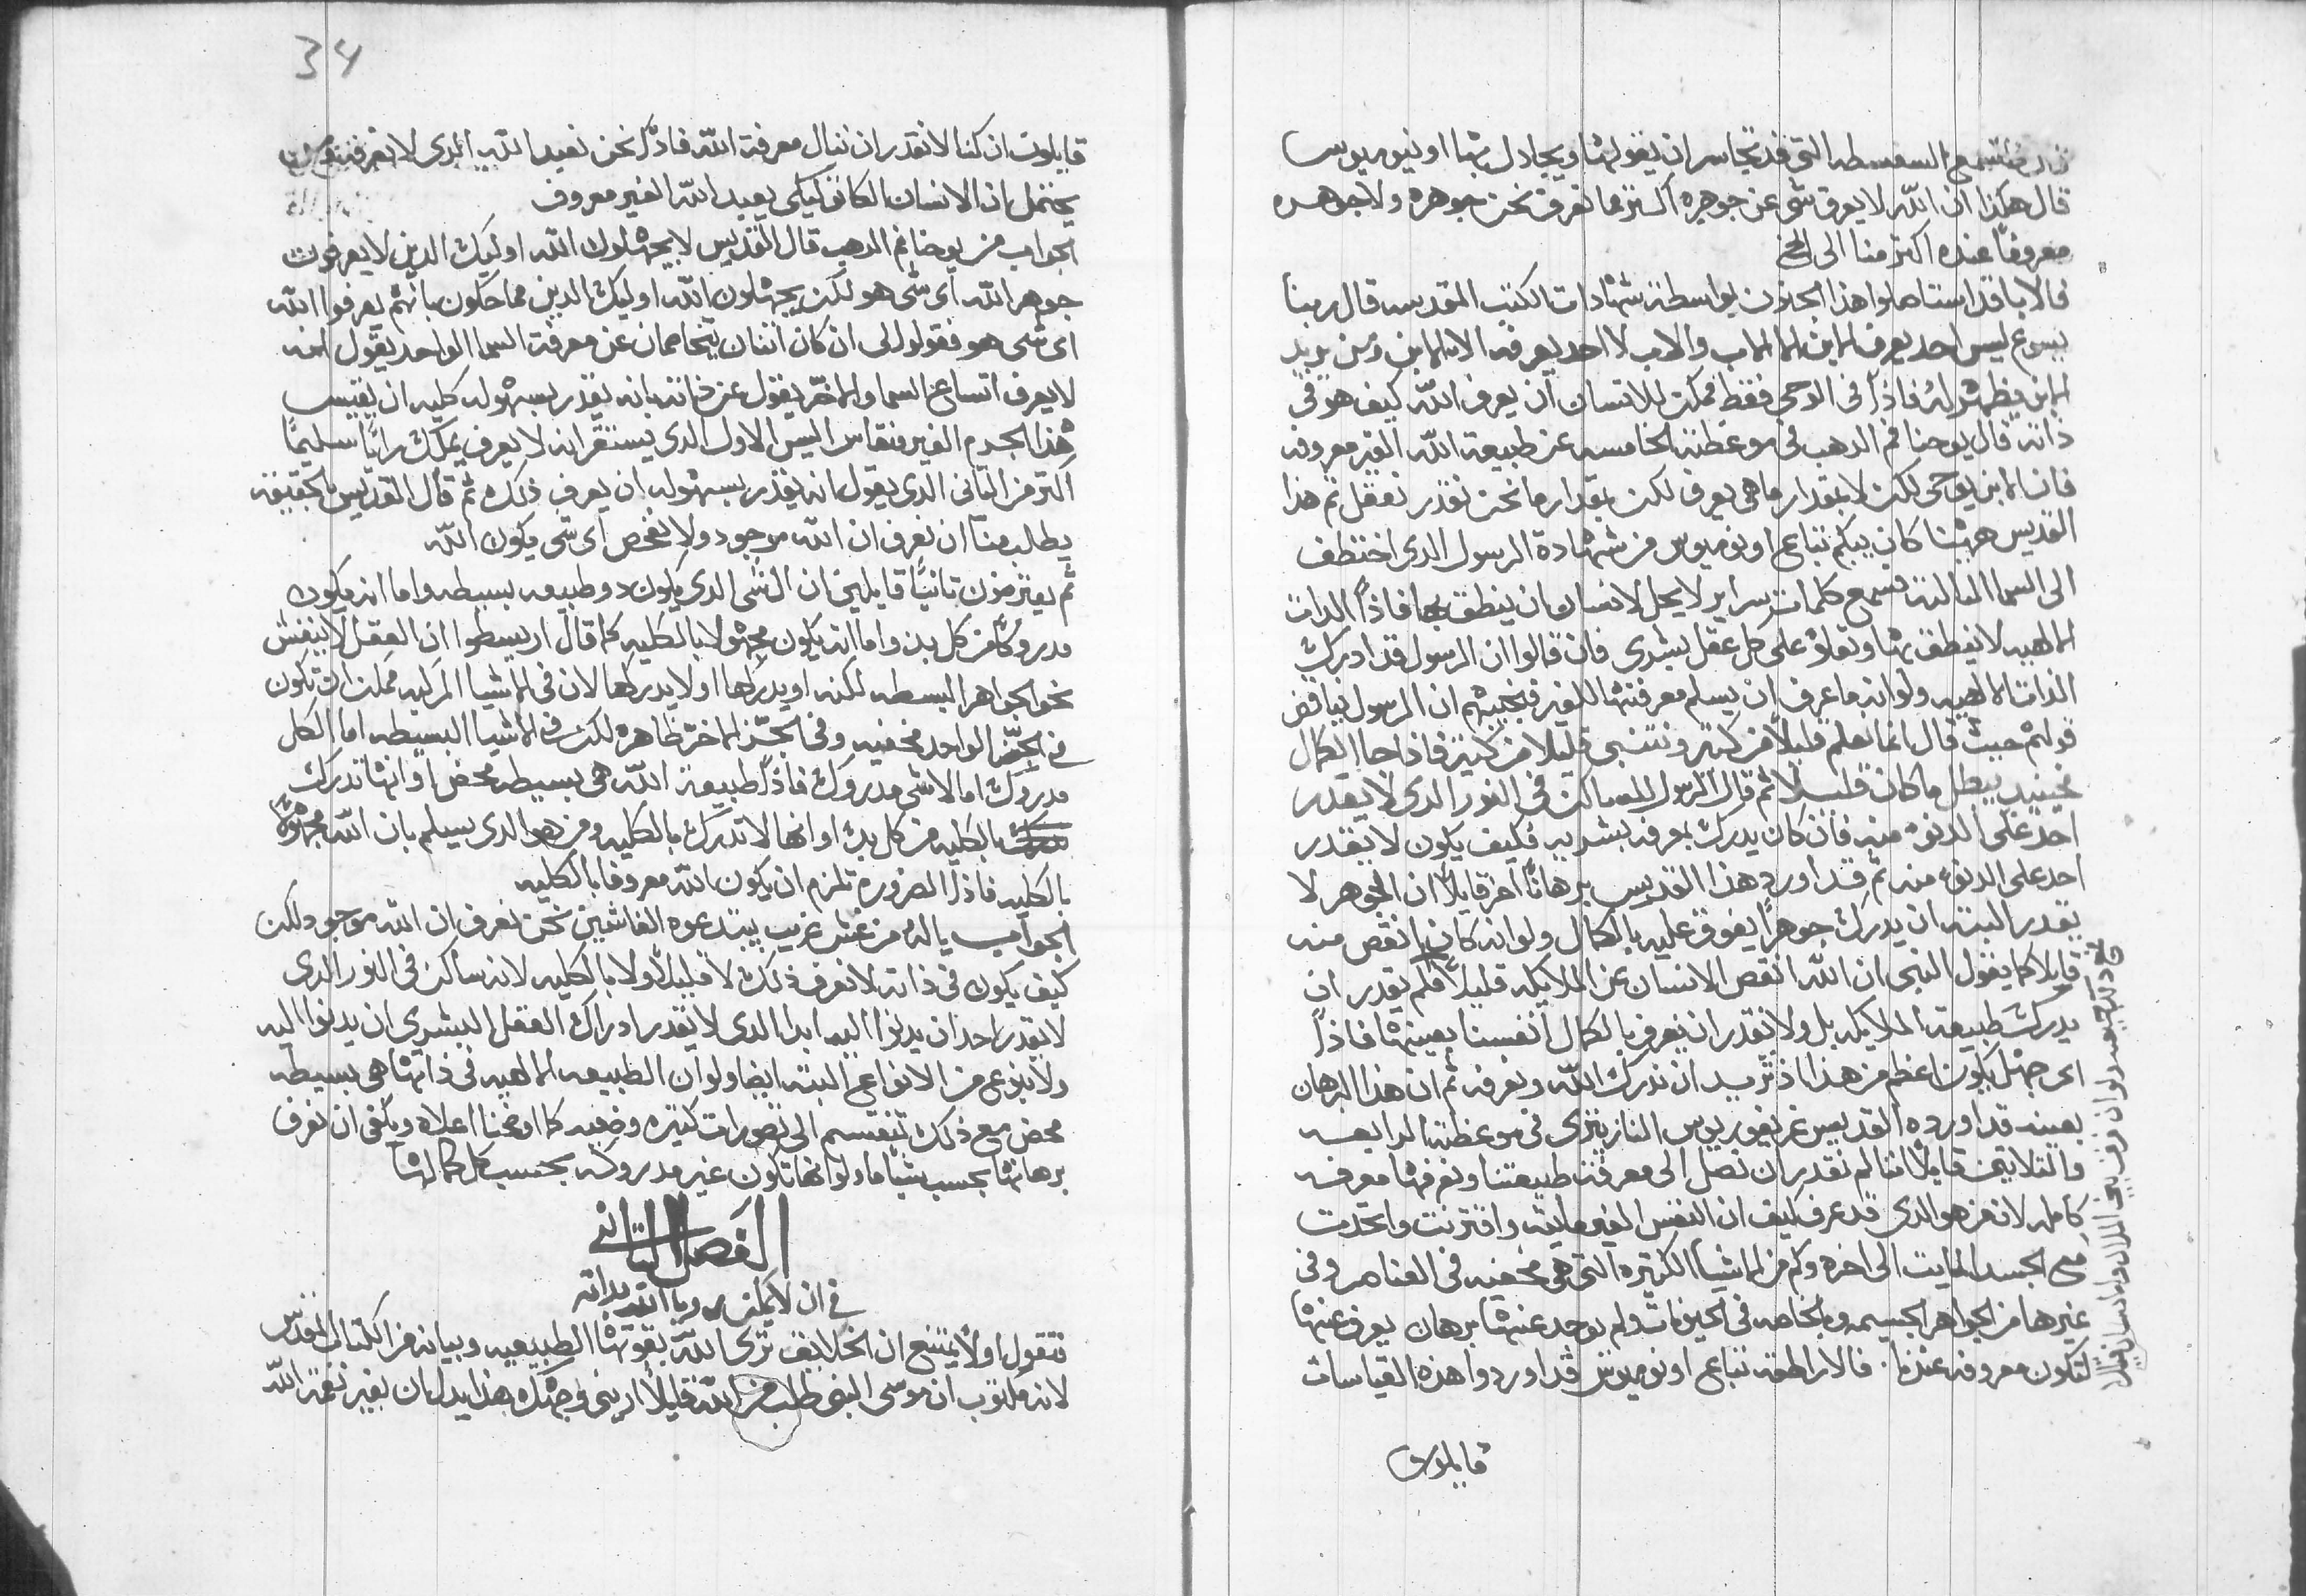 فلنستمع السفسطه التي قد تجاسر ان يقولها ويجادل بها اونوميوس
قال هكذا ان الله لا يعرف شي عن جوهره اكتر مما نعرف نحن جوهره ولا جوهره
معروفاً عنده اكتر منا الى الخ
فالابا قد استاصلوا هذا الجنون بواسطة شهادات الكتب المقدسه قال ربنا
يسوع ليس احد يعرف الابن الا الاب والاب لا احد يعرفه الا الابن ومن يريد
الابن يظهر له فاذاً في الوحي فقط ممكن للانسان ان يعرف الله كيف هو في
ذاته قال يوحنا فم الدهب في موعظته الخامسه عن طبيعة الله الغير معروفه
فان الابن يوحي لكن لا بمقدار ما هي يعرف لكن بمقدار ما نحن نقدر نعقل ثم هذا
القديس ههنا كان يبكم تباع اونوميوس من شهادة الرسول الدى اختطف
الى السما التالته وسمع كلمات سراير لا يحل لانسان ان ينطق بها فاذاً الدات
الالهيه لا ينطق بها وتعلو على كل عقل بشرى فان قالوا ان الرسول قد ادرك
الذات الالهيه ولو انه ما عرف ان يسلم معرفتها للغير فنجيبهم ان الرسول يناقض
قولهم حيث قال انما نعلم قليلاً من كتير ونتنبى قليلا من كتير فاذا جا الكمال
فحينيد يبطل ما كان قليلا ثم قال الرسول الله ساكن في النور الدى لا يقدر
احد على الدنو منه فان كان يدرك بمعرفه بشريه فكيف يكون لا يقدر
احد على الدنو منه ثم قد اورد هذا القديس برهاناً اخر قايلاً ان الجوهر لا
يقدر البته ان يدرك جوهراً يفوق عليه بالكمال ولو انه كان انقص منه
قايلا كما يقول النبي ان الله انقص الانسان عن الملايكه قليلاً فلم يقدر ان
يدرك طبيعة الملايكه بل ولا نقدر ان نعرف بالكمال انفسنا بعينها فاذاً
اى جهل يكون اعظم من هذا اذ نريد ان ندرك الله ونعرفه ثم ان هذا البرهان
بعينه قد اورده القديس غريغوريوس النازينزى في موعظته الرابعه
والتلاتين قايلاً اننا لم نقدر ان نصل الى معرفة طبيعتنا ونعرفها معرفه
كامله لان من هو الدى قد عرف كيف ان النفس الغير مايته واقترنت واتحدت
مع الجسد المايت الى اخره وكم من الاشيا الكتيره التي هي مخفيه في العناصر وفي
غيرها من الجواهر الجسيمه وبالخاصه في الحيوانات ولم يوجد عنها برهان يعرف عنها
لتكون معروفه عندنا. فالاراطقه تباع اونوميوس قد اوردوا هذه القياسات
قايلون
34
قايلون ان كنا لا نقدر ان ننال معرفة الله فاذاً نحن نعبد الله الدى لا نعرفه
يحتمل ان الانسان يعبد الله الغير معروف
الجواب من يوحنا فم الدهب قال القديس لا يجهلون الله اوليك الدين لا يعرفون
جوهر الله اى شي هو لكن يجهلون الله اوليك الدين مماحكون بانهم يعرفوا الله
اى شي هو فقولوا لي ان كان اتنان يتخاصمان عن معرفة السما الواحد يقول انه
لا يعرف اتساع السما والاخر يقول عن ذاته بانه يقدر بسهوله كليه ان يقيس
هذا الجرم الغير منقاس اليس الاول الدى يستقر انه لا يعرف يملك راياً سليماً
اكتر من التاني الدى يقول انه يقدر بسهوله ان يعرف ذلك ثم قال القديس بالحقيقه
يطلب منا ان نعرف ان الله موجود ولا نفحص اى شي يكون الله
ثم يعترضون تانياً قايلين ان الشي الدى يكون دو طبيعه بسيطه واما انه يكون
مدروكاً من كل بد واما انه يكون مجهولا بالكليه كما قال اريسطوا ان العقل لا ينغش
نحو الجواهر البسيطه لكنه او يدركها او لا يدركها لان في الاشيا المركبه ممكن ان تكون
في الجز الواحد مخفيه وفي الجز الاخر ظاهره لكن في الاشيا البسيطه اما الكل
مدروك اما لا شي مدروك فاذاً طبيعة الله هي بسيطه محض اذا انها تدرك
بالكليه من كل بد او انها لا تدرك بالكليه ومن هو الدى يسلم بان الله مجهولا
بالكليه فاذاً الضروره تلزم ان يكون الله معروفا بالكليه
الجواب ياله من غش غريب يبتدعوه الغاشين نحن نعرف ان الله موجود لكن
كيف يكون في ذاته لا نعرف ذلك لا قليلاً ولا بالكليه لانه ساكن في النور الدى
لا يقدر احد ان يدنوا اليه ابدا الدى لا يقدر ادراك العقل البشرى ان يدنوا اليه
ولا بنوع من الانواع البته ايضا ولو ان الطبيعه الالهيه في ذاتها هي بسيطه
محض مع ذلك تنقسم الى تصورات كتيره وضعيه كما اوضحنا اعلاه ويكفي ان نعرف
برهانها بحسب شياً ما ولو انها تكون غير مدروكه بحسب كل كمالها
الفصل التاني
في ان لا يمكن روية الله بداته
نقول اولاً يمتنع ان الخلايق ترى الله بقوتها الطبيعيه وبيانه من الكتاب المقدس
لانه مكتوب ان موسى النبي طلب من الله قايلاً ارينى وجهك بهذا يدل ان بغير نعمة الله